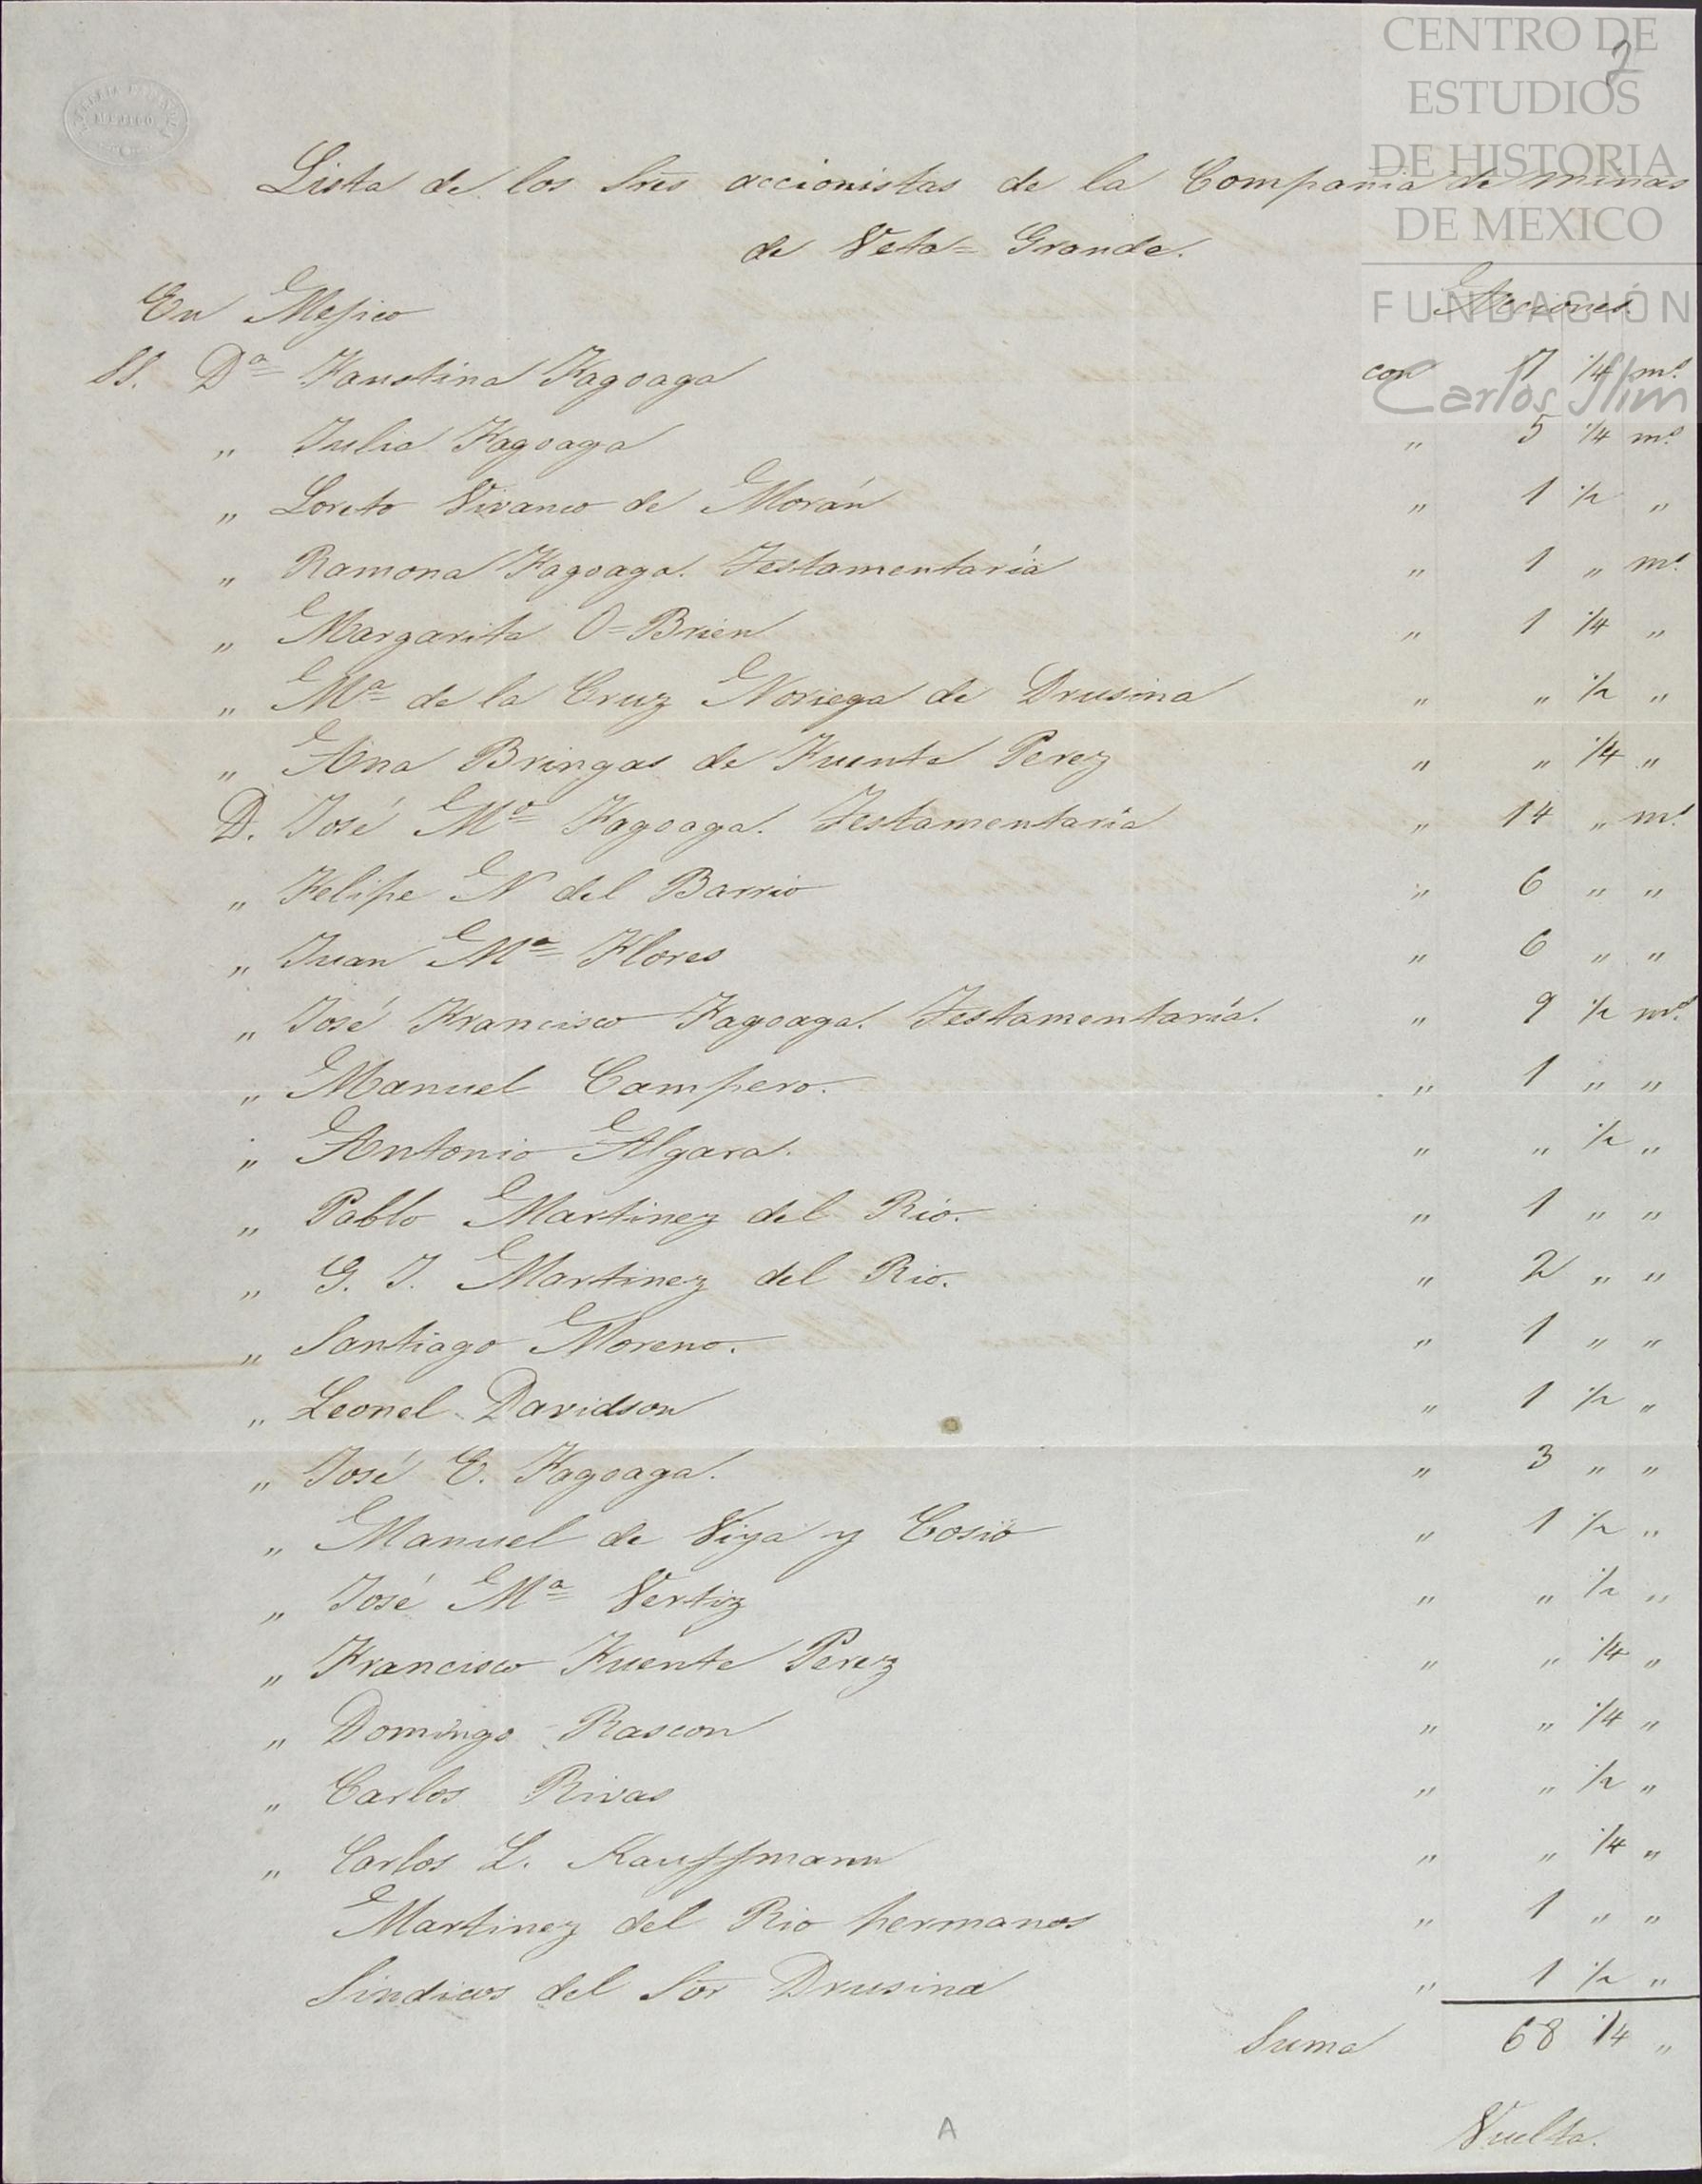 CENTRO DE
ESTUDIOS
DE HISTORIA
DE MEXICO
FUNDACIÓN
Carlos Slim
2
MEJICO
Lista de los Sres accionistas de la Compania de minas
de Veta=Grande.
En Mejico Acciones.
SS. Da Faustina Fagoaga con 7 1/4 ms.
„ Julia Fagoaga „ 5 1/4 ms.
„ Loreto Vivanco de Morán „ 1 1/2 „
„ Ramona Fagoaga. Testamentaría „ 1 „ ms.
„ Margarita O=Brien „ 1 1/4 „
„ Ma de la Cruz Noriega de Drusina „ „ 1/2 „
„ Ana Bringas de Fuente Perez „ „ 1/4 „
D. José Ma Fagoaga. Testamentaría „ 14 „ ms.
„ Felipe N del Barrio „ 6 „ „
„ Juan Ma Flores „ 6 „ „
„ José Francisco Fagoaga. Testamentaría. „ 9 1/2 ms.
„ Manuel Campero. „ 1 „ „
„ Antonio Algara. „ „ 1/2 „
„ Pablo Martinez del Rio. „ 1 „ „
„ G. J. Martinez del Rio. „ 2 „ „
„ Santiago Moreno. „ 1 „ „
„ Leonel Davidson „ 1 1/2 „
„ José E. Fagoaga. „ 3 „ „
„ Manuel de Viya y Cosio „ 1 1/2 „
„ José Ma Vertiz „ „ 1/2 „
„ Francisco Fuente Perez „ „ 1/4 „
„ Domingo Rascon „ „ 1/4 „
„ Carlos Rivas „ „ 1/2 „
„ Carlos L. Kauffmann „ „ 1/4 „
Martinez del Rio hermanos „ 1 „ „
Sindicos del Sor Drusina „ 1 1/2 „
Suma 68 1/4 „
A
Vuelta.